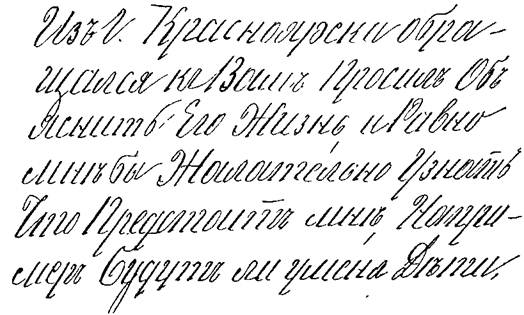 Изъ г. Красноярска обра-
щался къ Вамъ Просилъ Объ
Яснить Его Жизнь и Равно
мнѣ бы Жалательно Узнать
Что Предстоитъ мнѣ Напри-
меръ Будутъ ли уменя Дѣти,